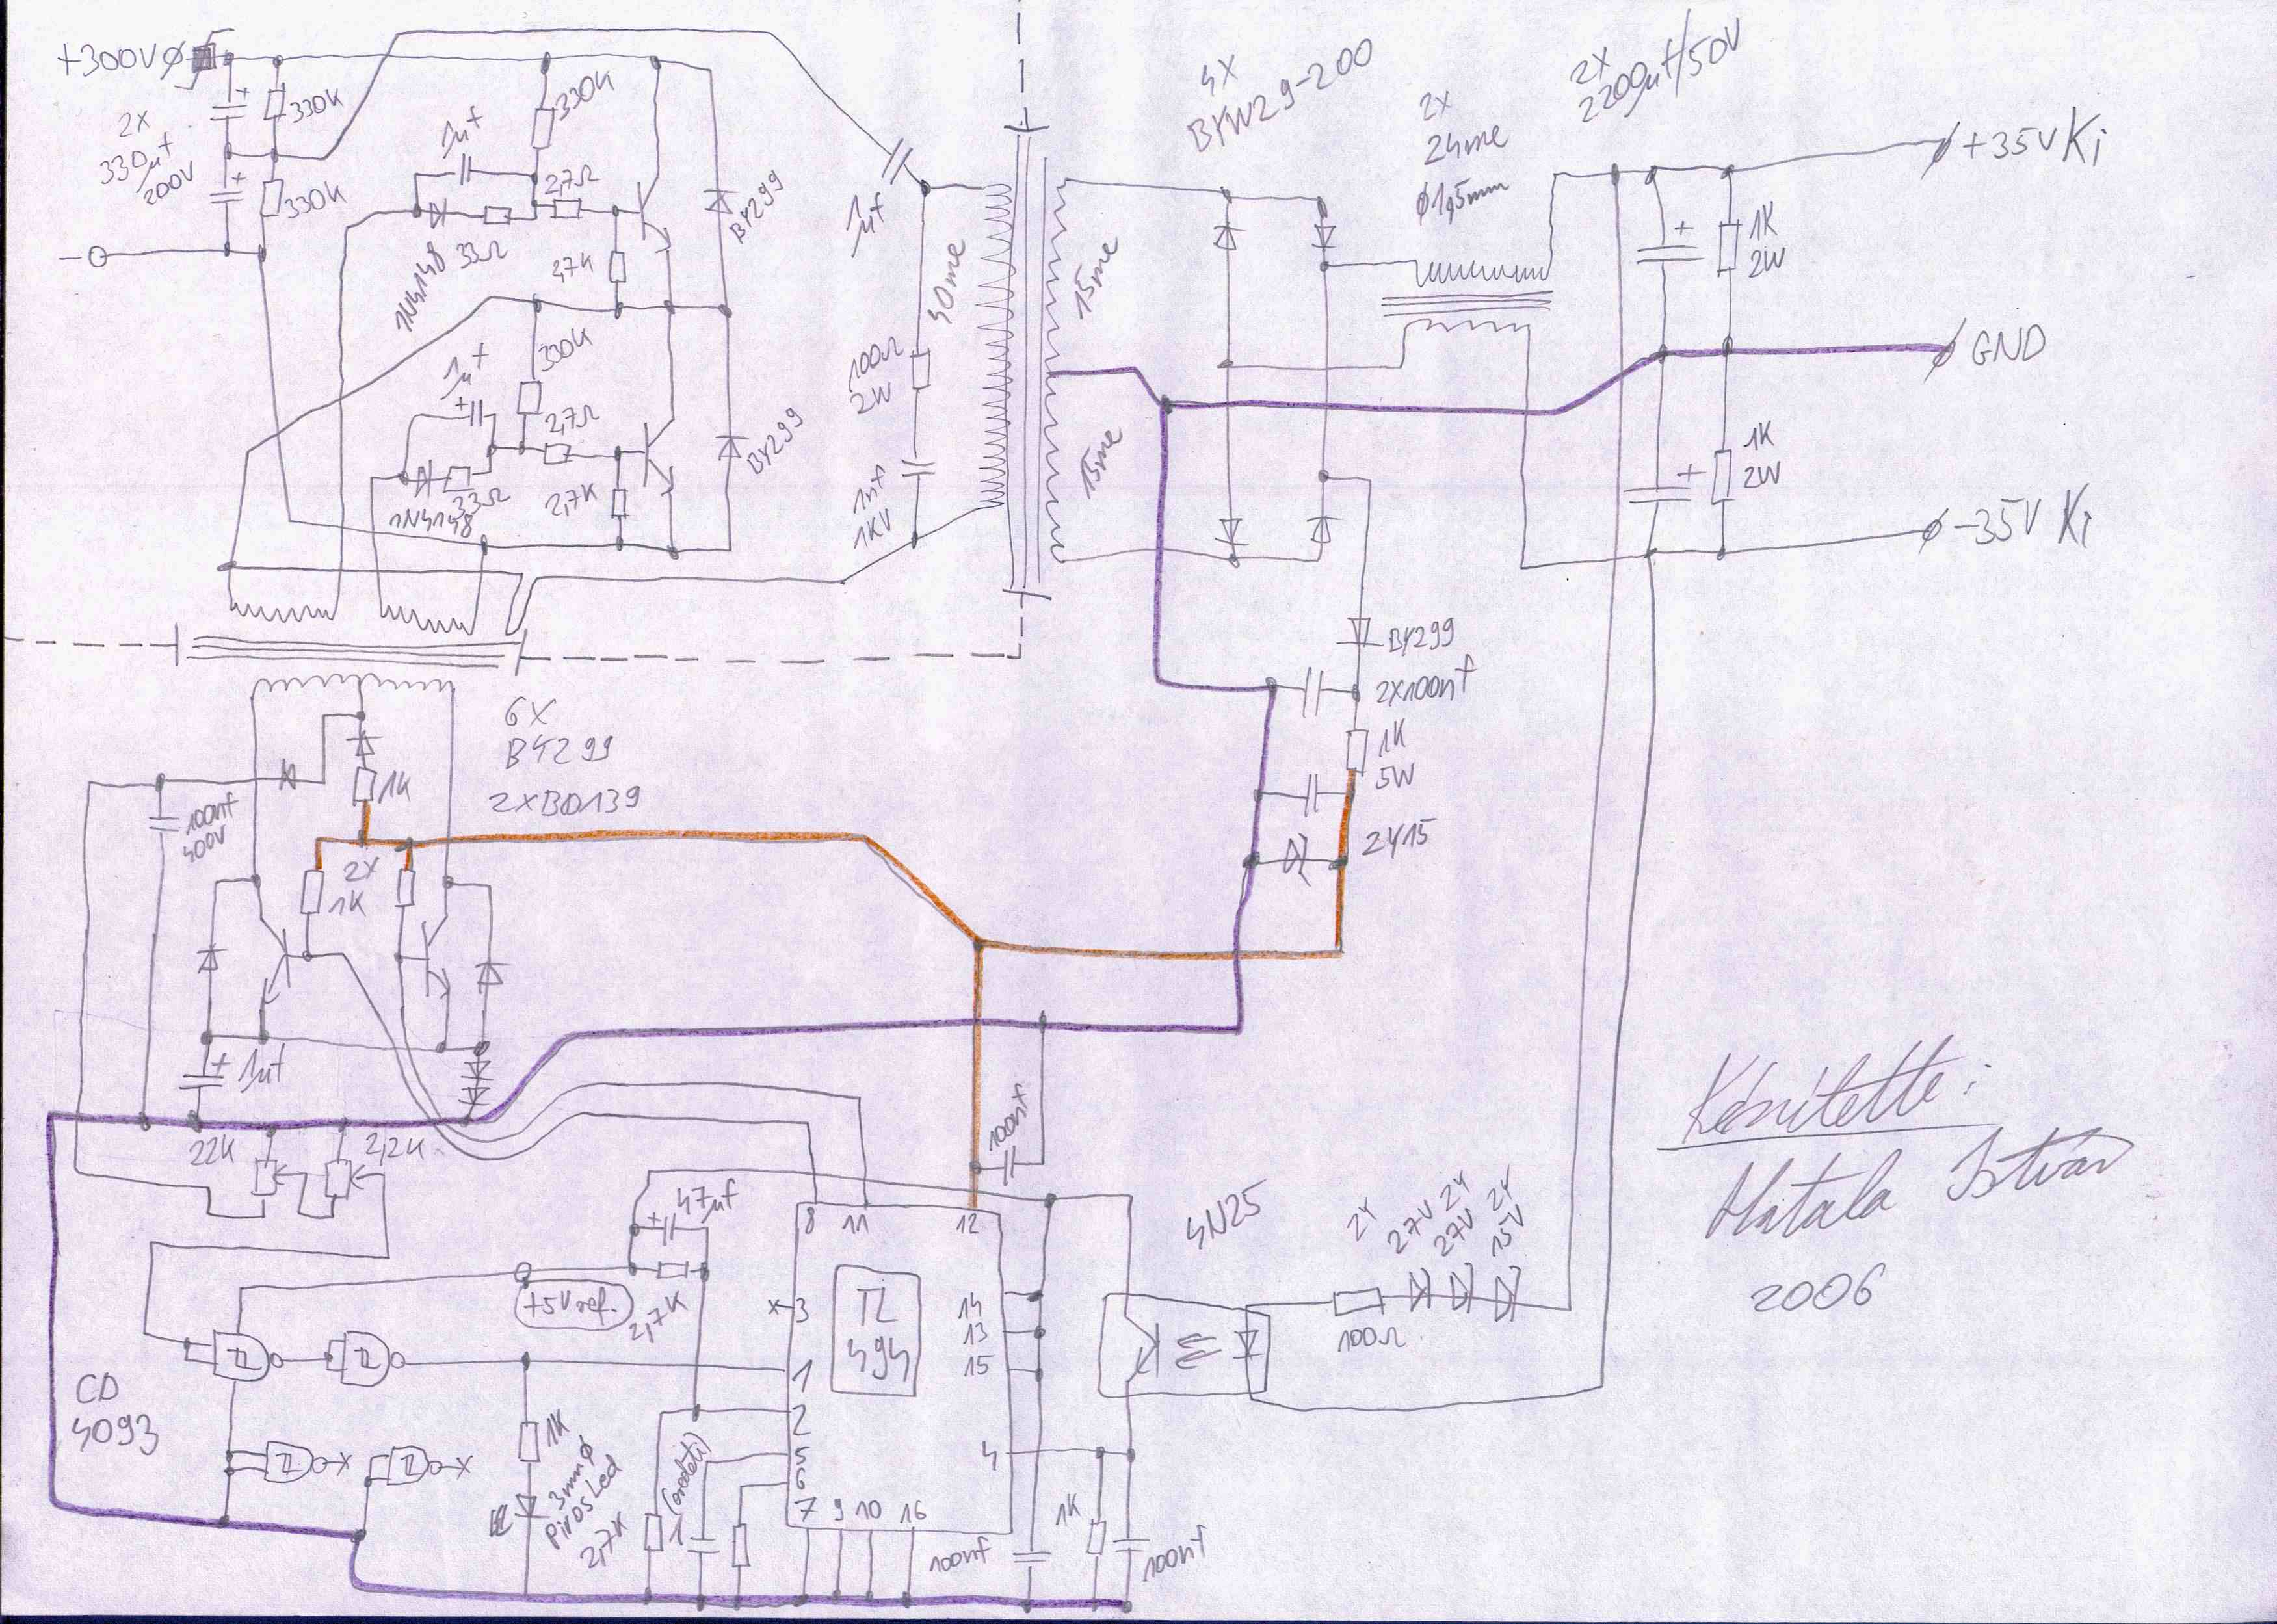 +300V
2X
330µf
200V
330K
330K
1µf
330K
2,7Ω
33Ω
1N4148
47K
BY299
1µf
330K
2,7Ω
33Ω
1N4148
2,7K
BY299
1µf
40me
100Ω
2W
1nf
1KV
15me
15me
4X
BYW29-200
2X
24me
ø1,5mm
2X
2200µf/50V
+35V Ki
1K
2W
GND
1K
2W
-35V Ki
BY299
2X100nf
1K
5W
ZY15
6X
BY299
2XBD139
1K
100nf
400V
2X
1K
+ 1µf
22K
2,2K
100nf
47µf
+5V ref.
2,7K
8 11 12
TL
494
x 3
1
2
5
6
7 9 10 16
14
13
15
4
4N25
ZY
27V
ZY
27V
ZY
15V
100Ω
CD
4093
1K
3mmø
Piros Led
2,7K
1 (eredeti)
100nf
1K
100nf
Készítette:
Matala István
2006